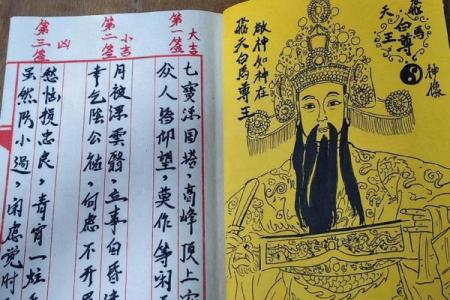 飛天
白馬
尊王
神像
敬神如神在
飛天白馬尊王
第一簽 大吉
七寶浮圖塔,高峰頂上
众人皆仰望,莫作等闲
第二簽 小吉
月被浮雲翳,立事自昏
幸乞陰公祐,何慮不开眉
第三簽 凶
愁惱損忠良,青宵一炷
虽然防小過,闲慮觉时